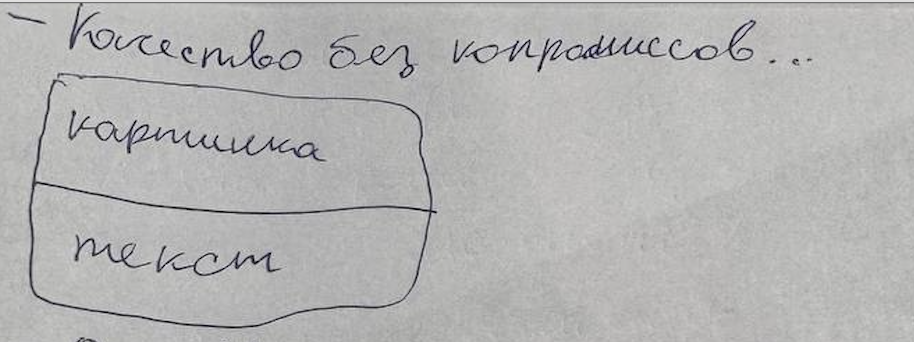 – Качество без копромиссов...
картинка
текст